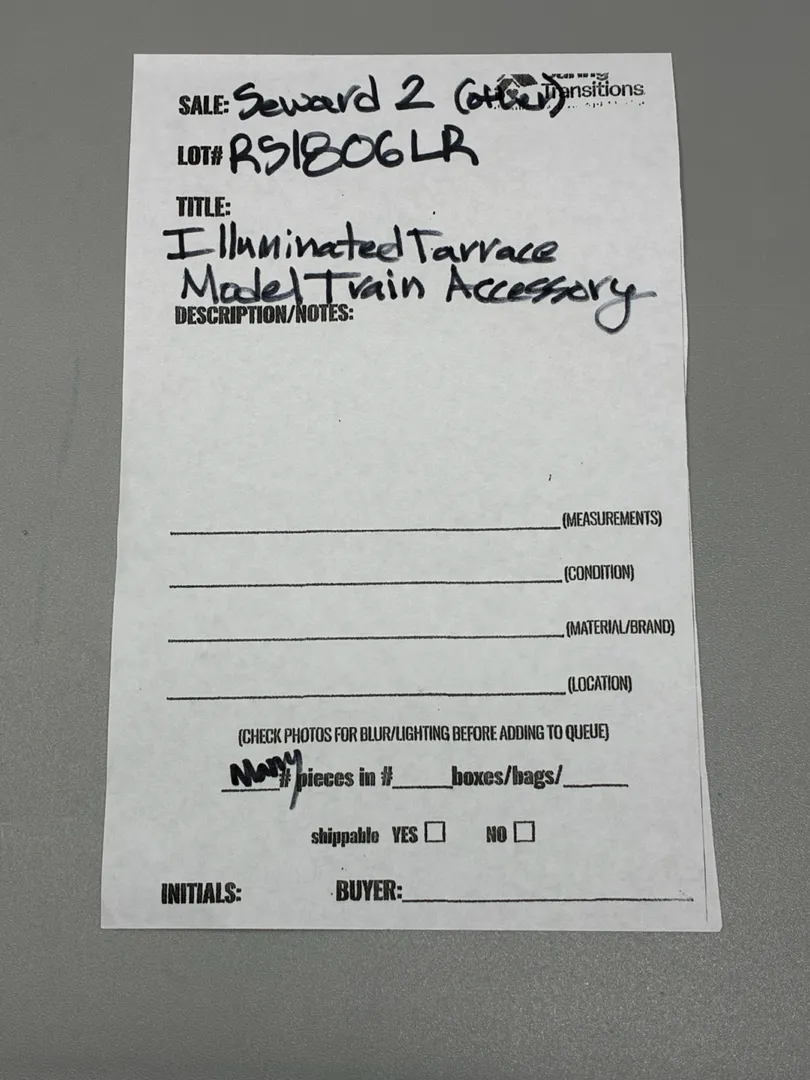 SALE: Seward 2 (other)
Transitions
LOT# RS1806LR
TITLE:
Illuminated Tarrace
Model Train Accessory
DESCRIPTION/NOTES:
(MEASUREMENTS)
(CONDITION)
(MATERIAL/BRAND)
(LOCATION)
(CHECK PHOTOS FOR BLUR/LIGHTING BEFORE ADDING TO QUEUE)
Many # pieces in #_____boxes/bags/_____
shippable YES NO
INITIALS: BUYER: